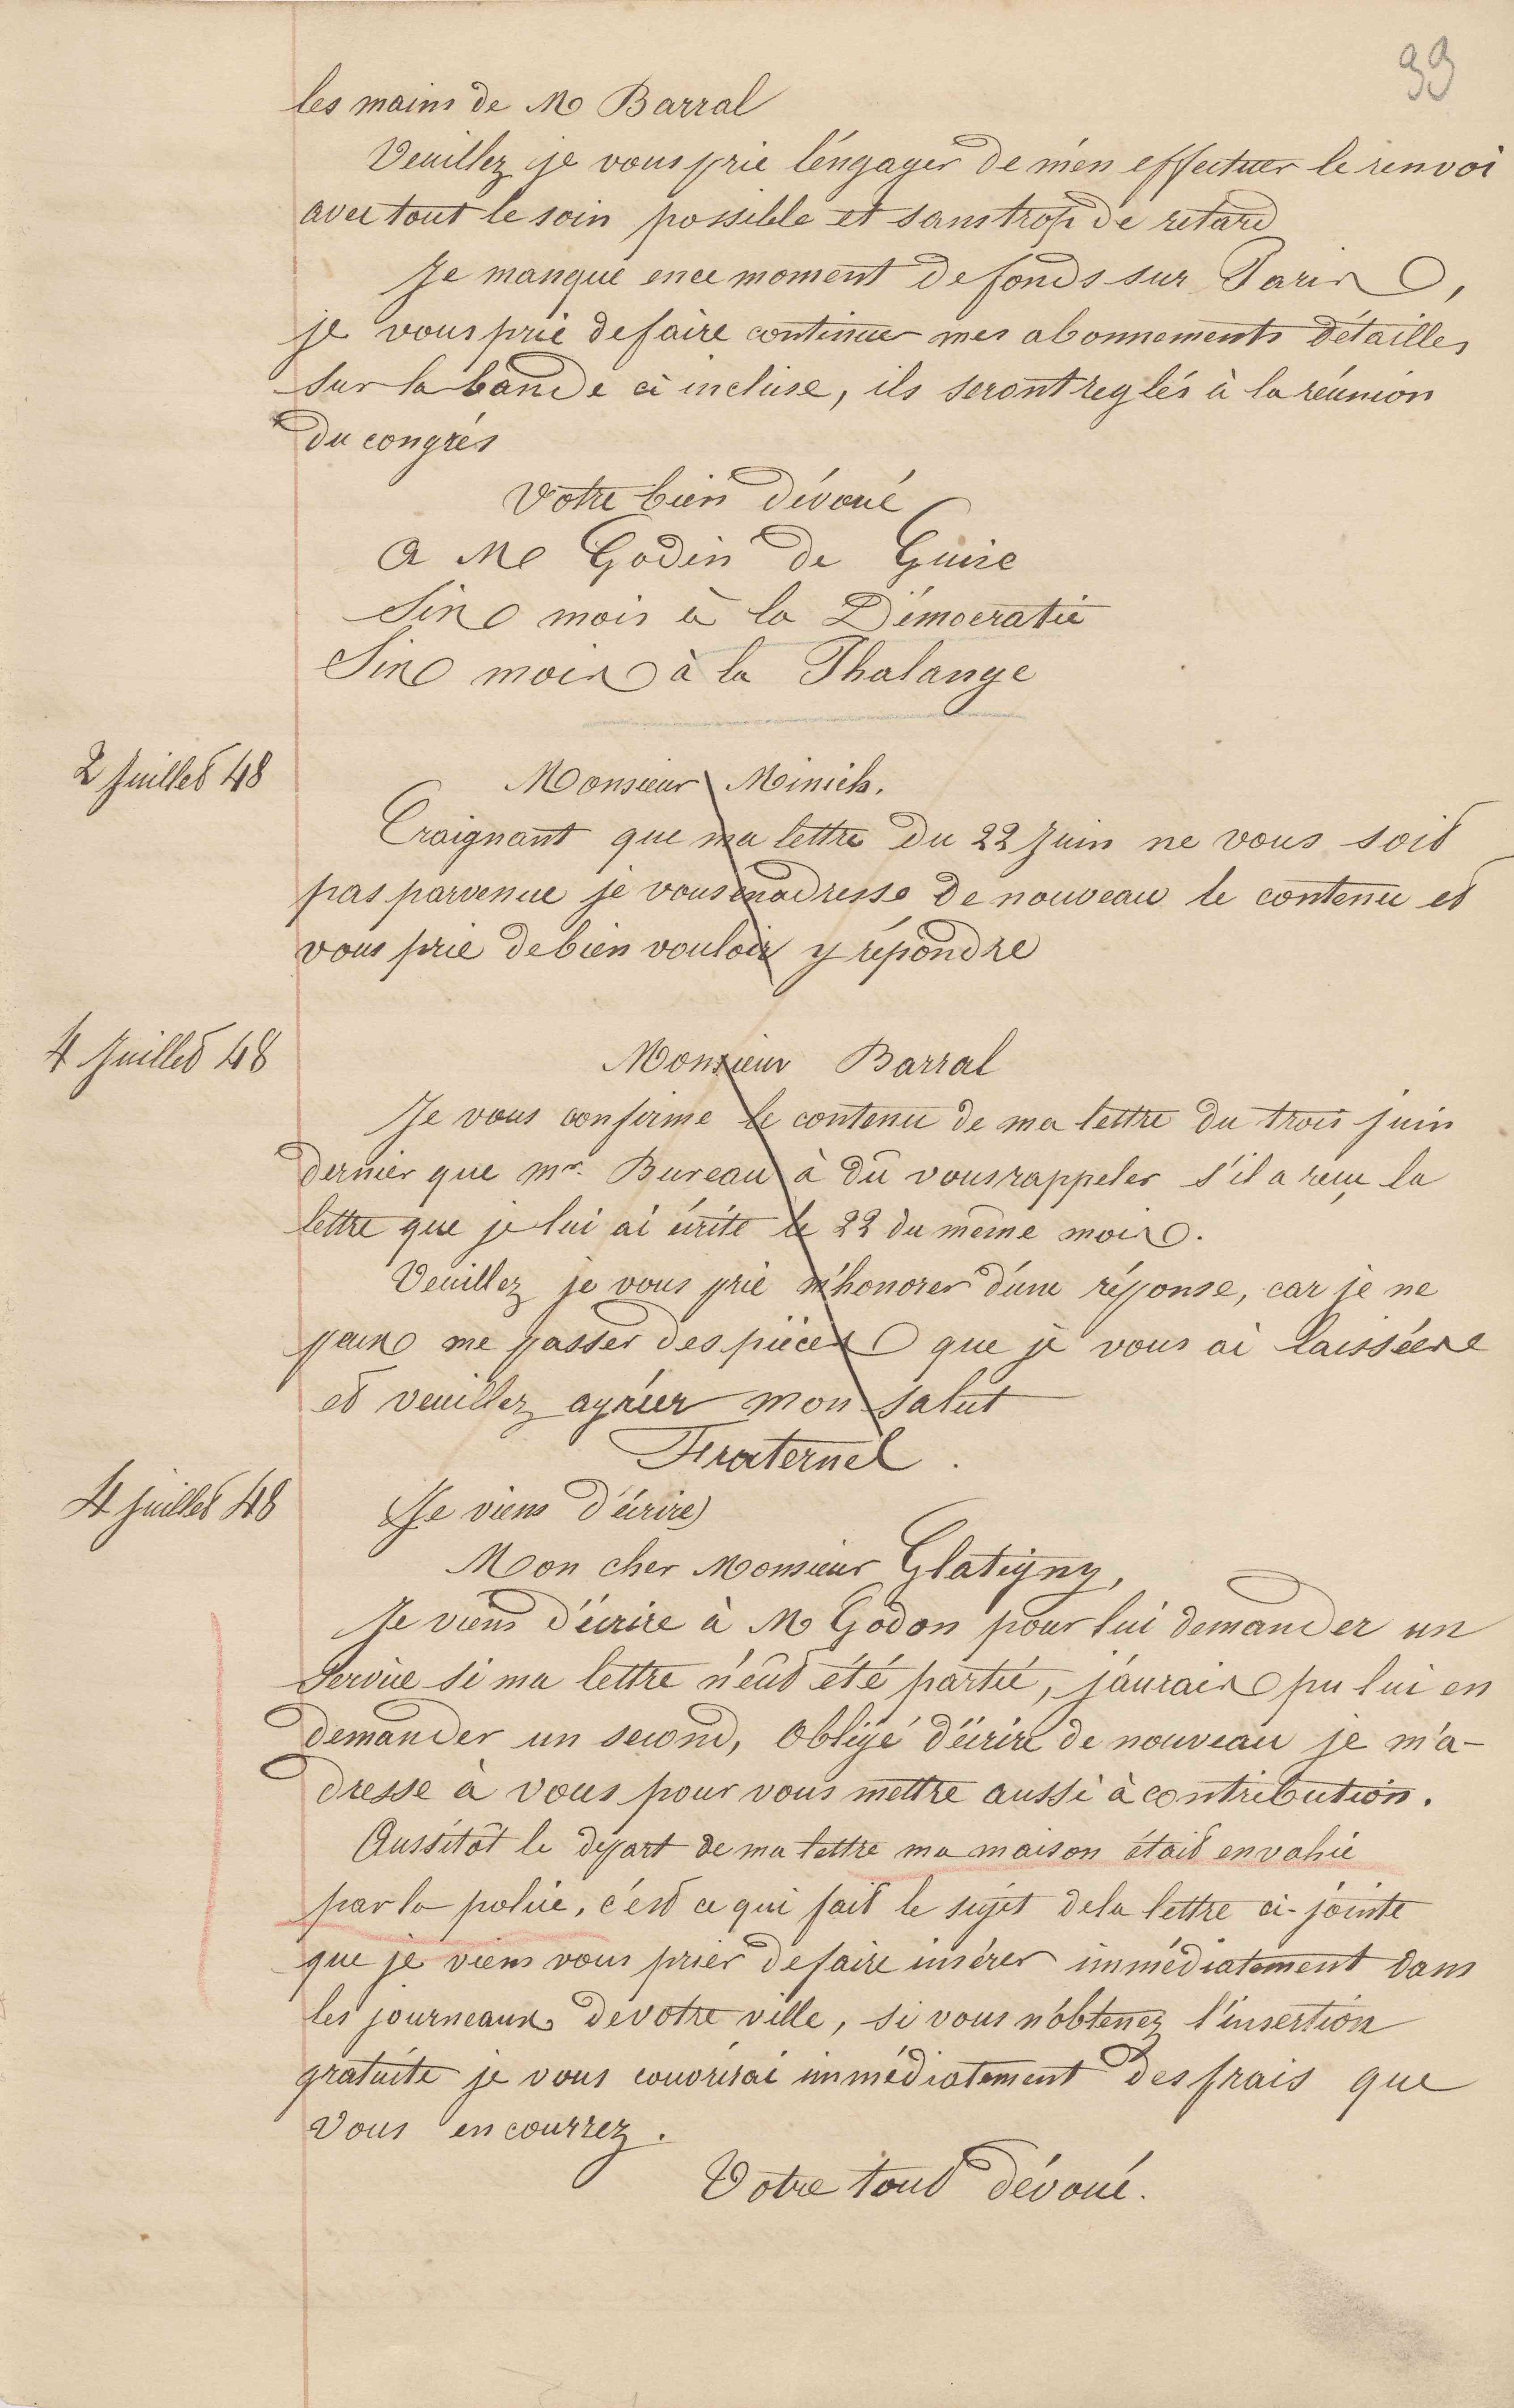 99
les mains de M Barral
Veuillez je vous prie l'éngager de m'en effectuer le renvoi
avec tout le soin possible et sans trop de retard
Je manque en ce moment de fonds sur Paris,
je vous prie de faire continuer mes abonnements détailles
sur la bande ci incluse, ils seront reglés à la réunion
du congrés
Votre bien dévoué
a Me Godin de Guise
Six mois à la Démocratie
Six mois à la Phalange
2 Juillet 48
Monsieur Minich.
Craignant que ma lettre du 22 Juin ne vous soit
pas parvenue je vous en adresse de nouveau le contenu et
vous prie de bien vouloir y répondre
4 Juillet 48
Monsieur Barral
Je vous confirme le contenu de ma lettre du trois juin
dernier que Mr. Bureau à dû vous rappeler s'il a reçu la
lettre que je lui ai écrite le 22 du même mois.
Veuillez je vous prie m'honorer d'une réponse, car je ne
peux me passer des pièces que je vous ai laissées
et veuillez agréer mon salut
Fraternel.
4 juillet 48
(Je viens d'écrire)
Mon cher Monsieur Glatigny,
Je viens d'écrire à M Godon pour lui demander un
service si ma lettre n'eût été partie, j'aurais pu lui en
demander un second, Obligé d'écrire de nouveau je m'a-
dresse à vous pour vous mettre aussi à contribution.
Aussitôt le départ de ma lettre ma maison était envahie
par la police, c'est ce qui fait le sujet de la lettre ci-jointe
que je viens vous prier de faire insérer immédiatement dans
les journeaux de votre ville, si vous n'obtenez l'insertion
gratuite je vous couvrirai immédiatement des frais que
vous encourrez.
Votre tout dévoué.